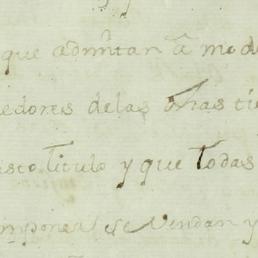 que admitan a mo d
edores delas otras tie
esto titulo y que todas
imponer se vendan y